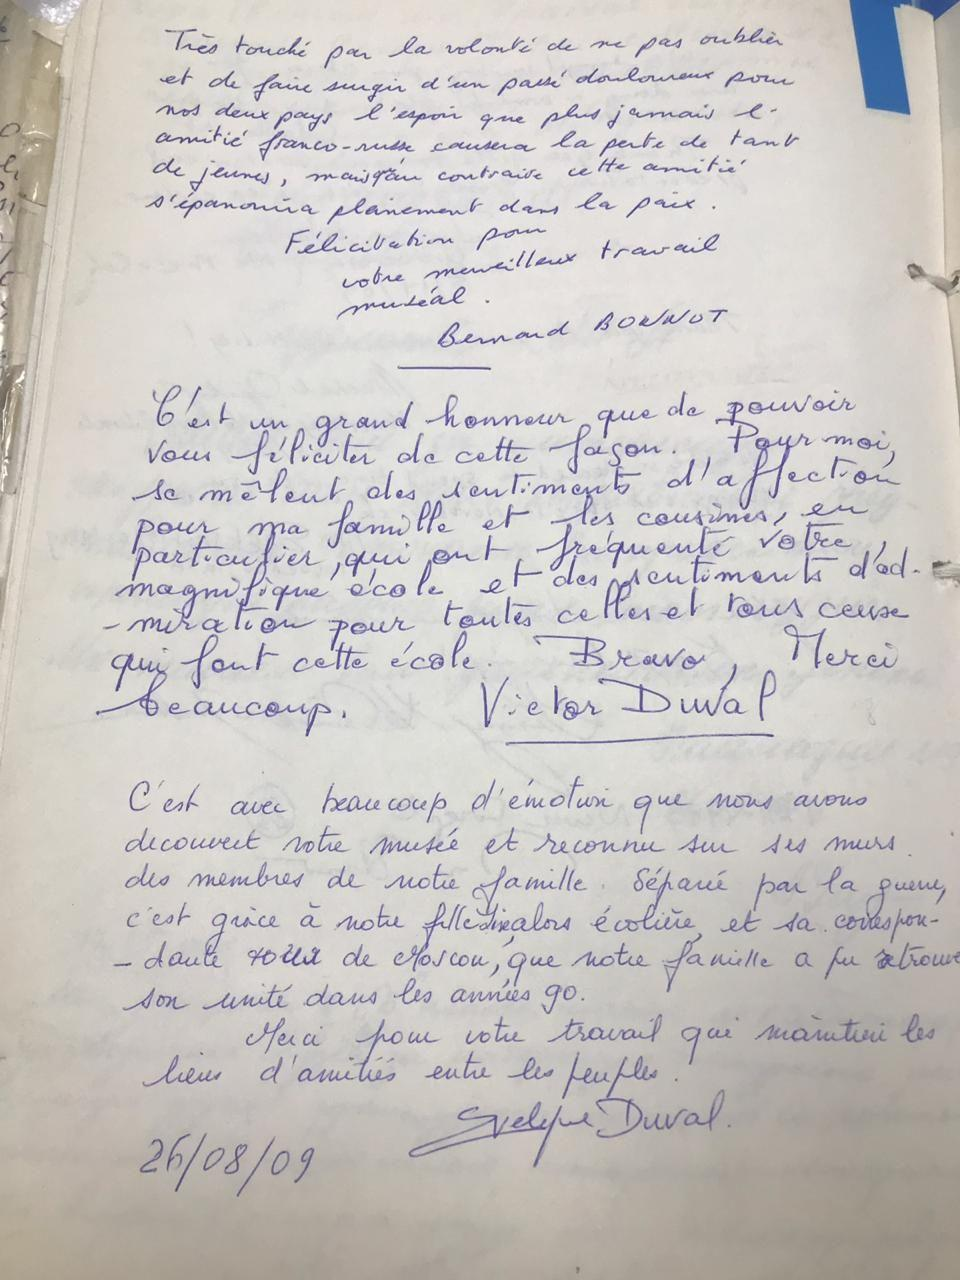 Très touché par la volonté de ne pas oublier
et de faire surgir d'un passé douloureux pour
nos deux pays l'espoir que plus jamais l'-
amitié franco-russe causera la perte de tant
de jeunes, mais qu'au contraire cette amitié
s'épanouira pleinement dans la paix.
Félicitation pour
votre merveilleux travail
muséal.
Bernard BONNOT
C'est un grand honneur que de pouvoir
vous féliciter de cette façon. Pour moi,
se mêlent des sentiments d'affection
pour ma famille et les cousines, en
particulier, qui ont fréquenté votre
magnifique école et des sentiments d'ad-
-miration pour toutes celles et tous ceux
qui font cette école. Bravo, Merci
beaucoup. Victor Duval
C'est avec beaucoup d'émotion que nous avons
decouvert votre musée et reconnu sur ses murs
des membres de notre famille. Séparé par la guerre,
c'est grâce à notre fille alors écolière, et sa correspon-
-dante de Moscou, que notre famille a pu retrouver
son unité dans les années 90.
Merci pour votre travail qui maintien les
liens d'amitiés entre les peuples.
Evelyne Duval.
26/08/09